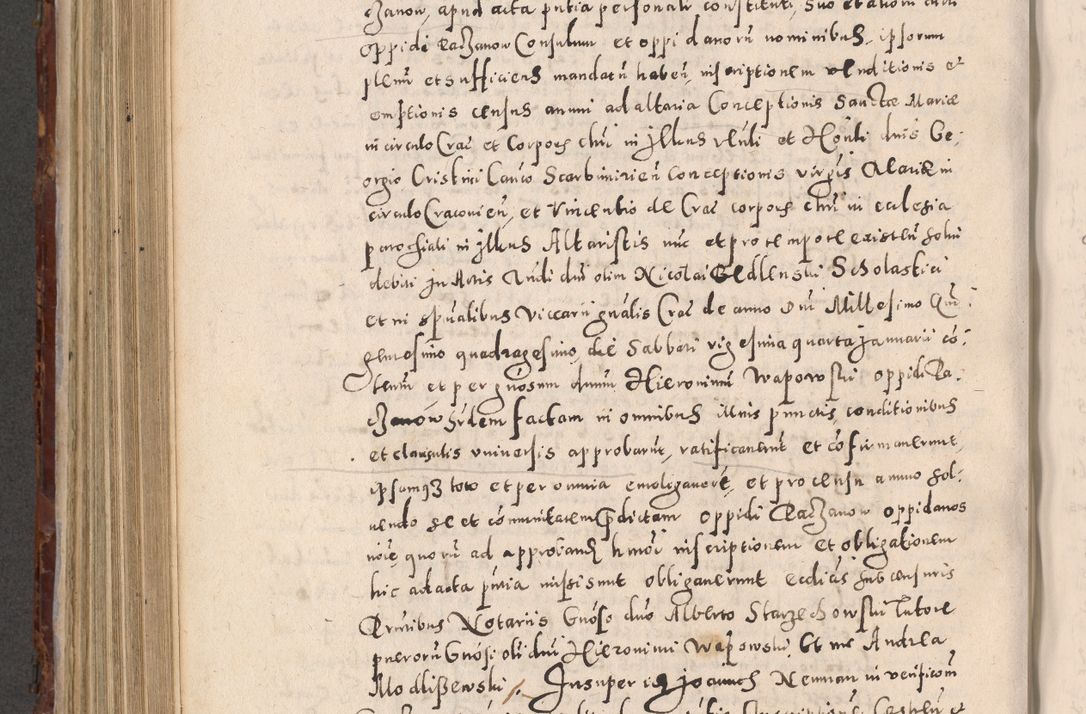 czanow, apud acta pntia personalr constituti, suo et aliorum civiu
oppidi Raczanow Consulum et oppidanorū nominibus, ipsorum
plenū et sufficiens mandatū haben, inscriptionem venditionis et
emptionis census annui ad altaria Conceptionis Sanctæ Mariæ
in circulo Crac et Corporis chri in Jllkus Vnli et Honli dnis Ge-
orgio Cristini Canco Scarbimirien conceptionis virgis Mariæ in
circulo Cracovien, et Vincentio de Crac corporis chri in ecclesia
parochiali in Jllkus Altaristis nuc et pro tempore existen solui
debiti in Actis Vndi dni olim Nicolai Bedlenski Scholastici
et in spualibus Viccarii gnalis Crac de anno Dni Millesimo Quī-
gentesimo quadragesimo, die Sabbati vigesima quarta Januarii cō-
tentū et per gnosum dnum Hieronimū Wapowski oppidi Ra-
czanow hrdem factam in omnibus illius punctis, conditionibus
et clausulis universis approbarūt, ratificaverūt et cōfirmaverunt,
ipsamqz toto et per omnia emologavert, et pro censu annuo sol-
vendo se et cōmunitatem pdictam oppidi Raczanow oppidanos
noie quorū ad approband hmoi inscriptionem et obligationem
hic ad acta pntia missi sunt obligaverunt ecclicis sub censuris
Pntibus Notariis Gnoso dno Alberto Starzechowski Tutore
puerorū Gnosi oli dni Hieronimi Wapowski, Et me Andrea
Modlissewski /. Insuper is Joannes Neuman in verificoni